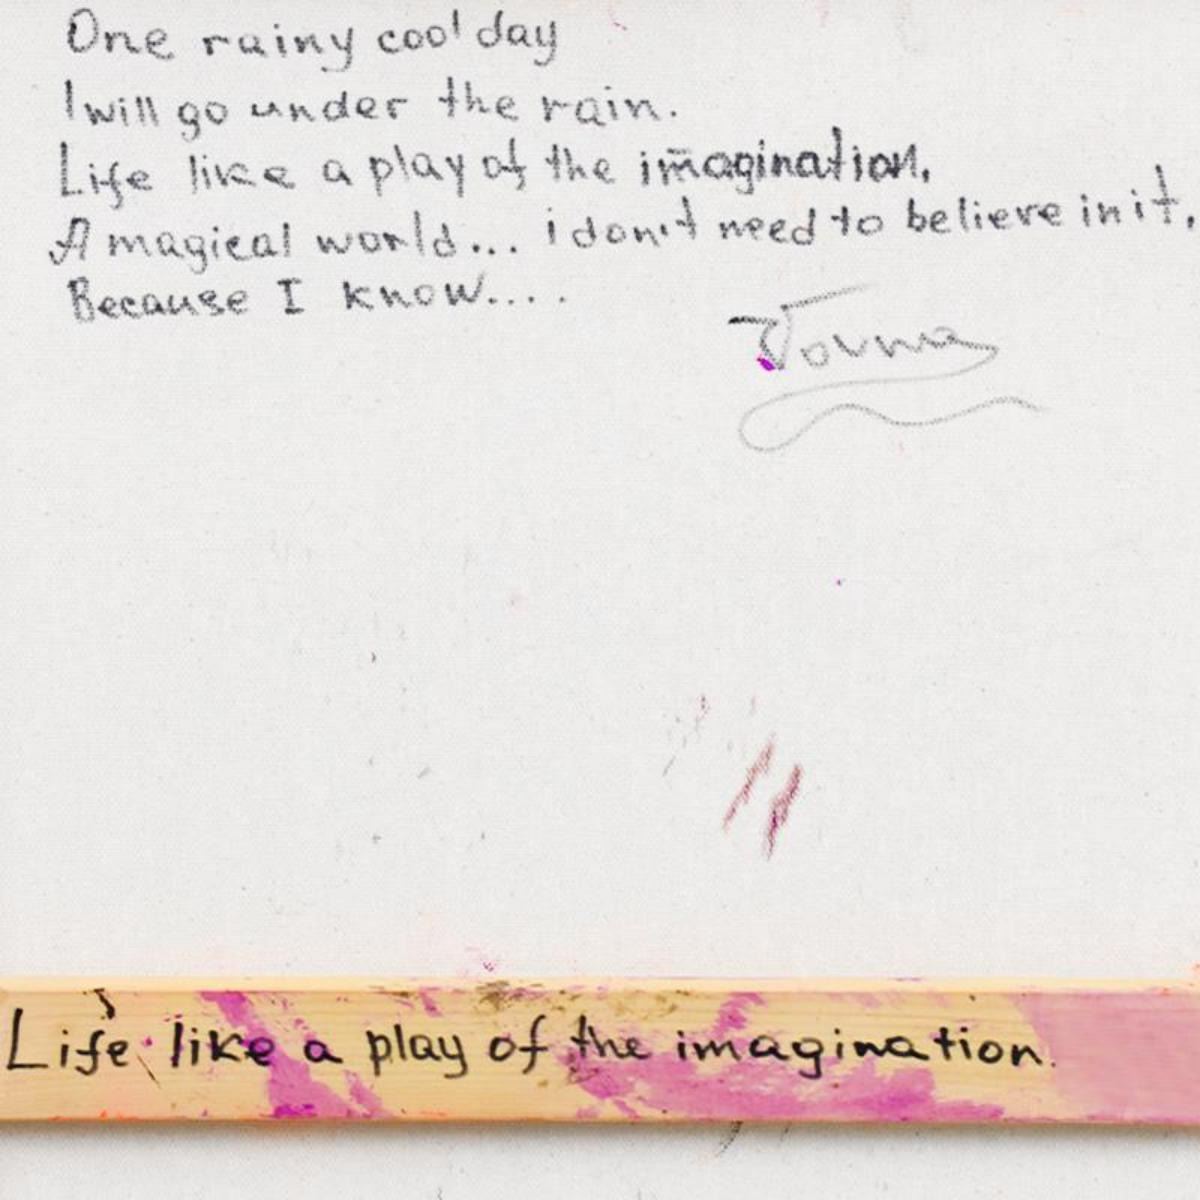 One rainy cool day
I will go under the rain.
Life like a play of the imagination.
A magical world... i don't need to believe in it,
Because I know....
Life like a play of the imagination.